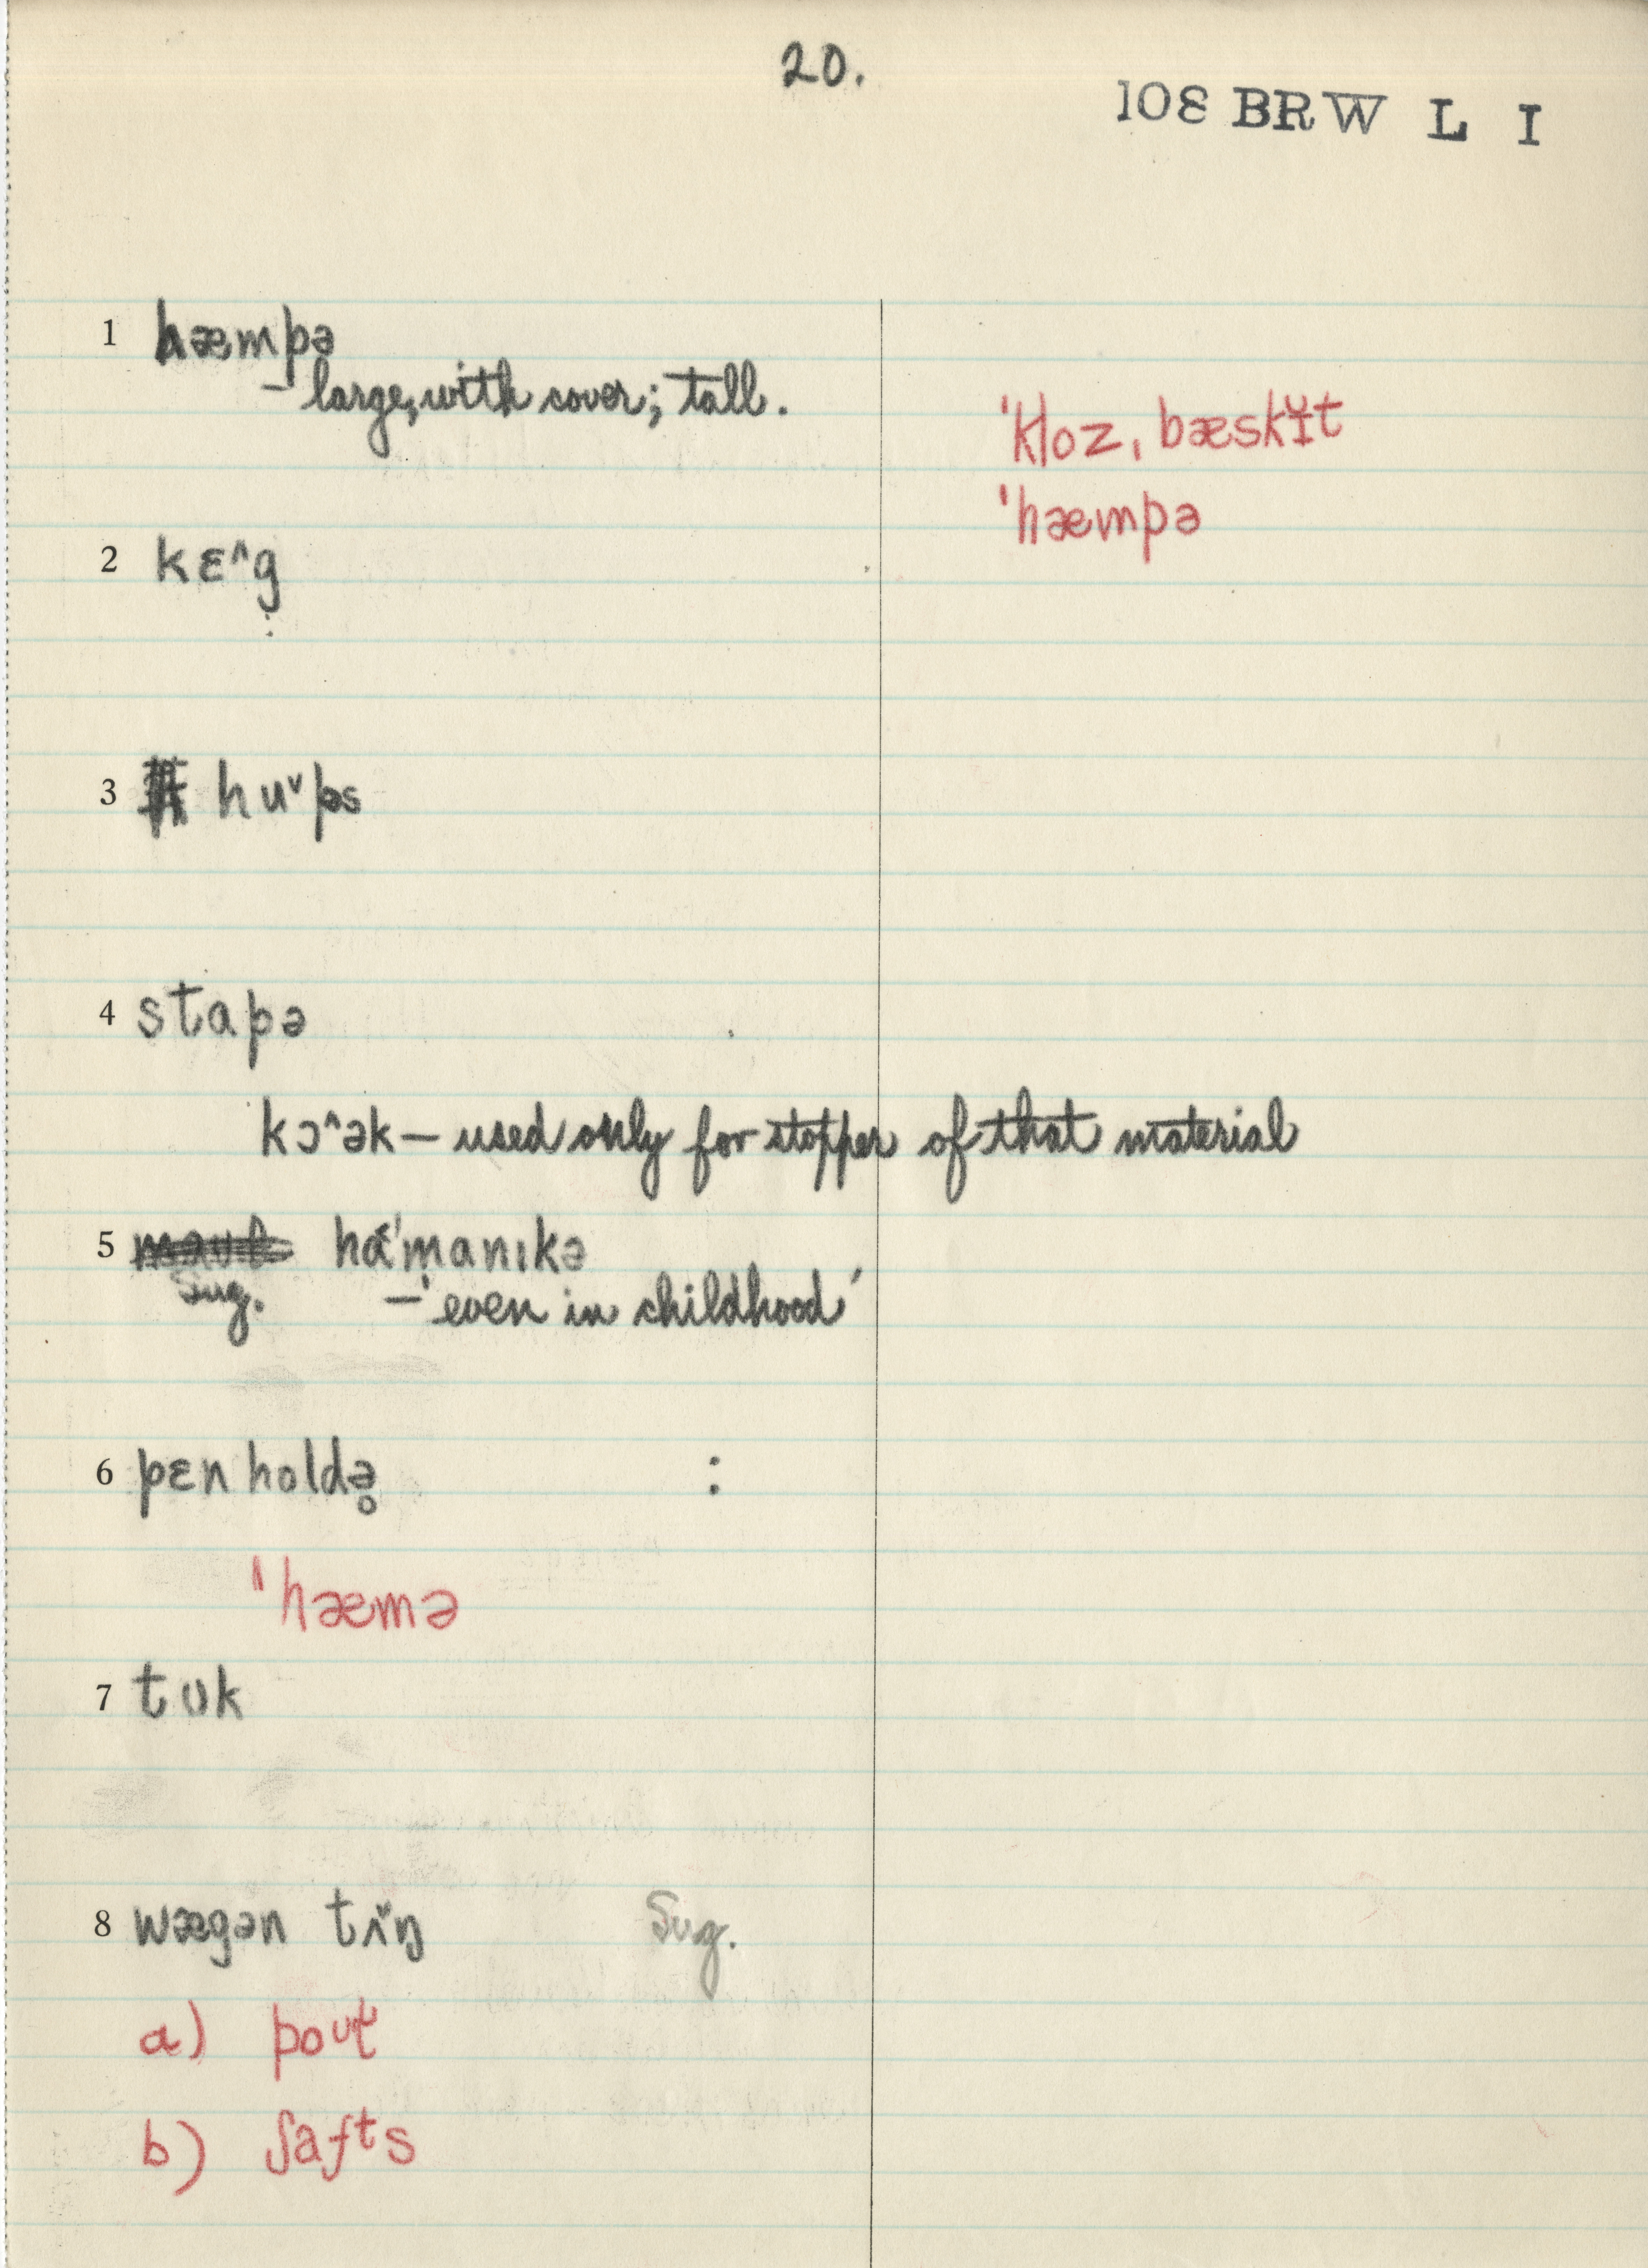 20.
108 BRW L I
1 hæmpə
– large, with cover; tall.
ˈkloz ˌbæskɪ̆t
ˈhæmpə
2 kɛ^g̣
3 huˇps
4 stapə
kɔ^ək – used only for stopper of that material
5 haˈmanɪkə
Sug. – 'even in childhood'
6 pɛnholdə̥ :
ˈhæmə
7 tʊk
8 wægən tʌˇŋ Sug.
a) poʊt
b) ʃafts